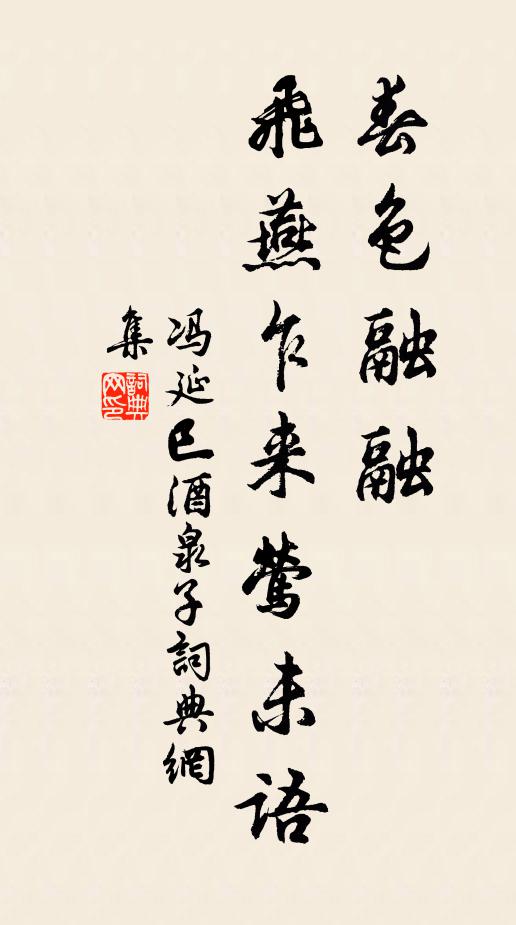 春色融融
飛燕乍来鶯未语
冯延巳酒泉子詞典網
集
詞典
网印